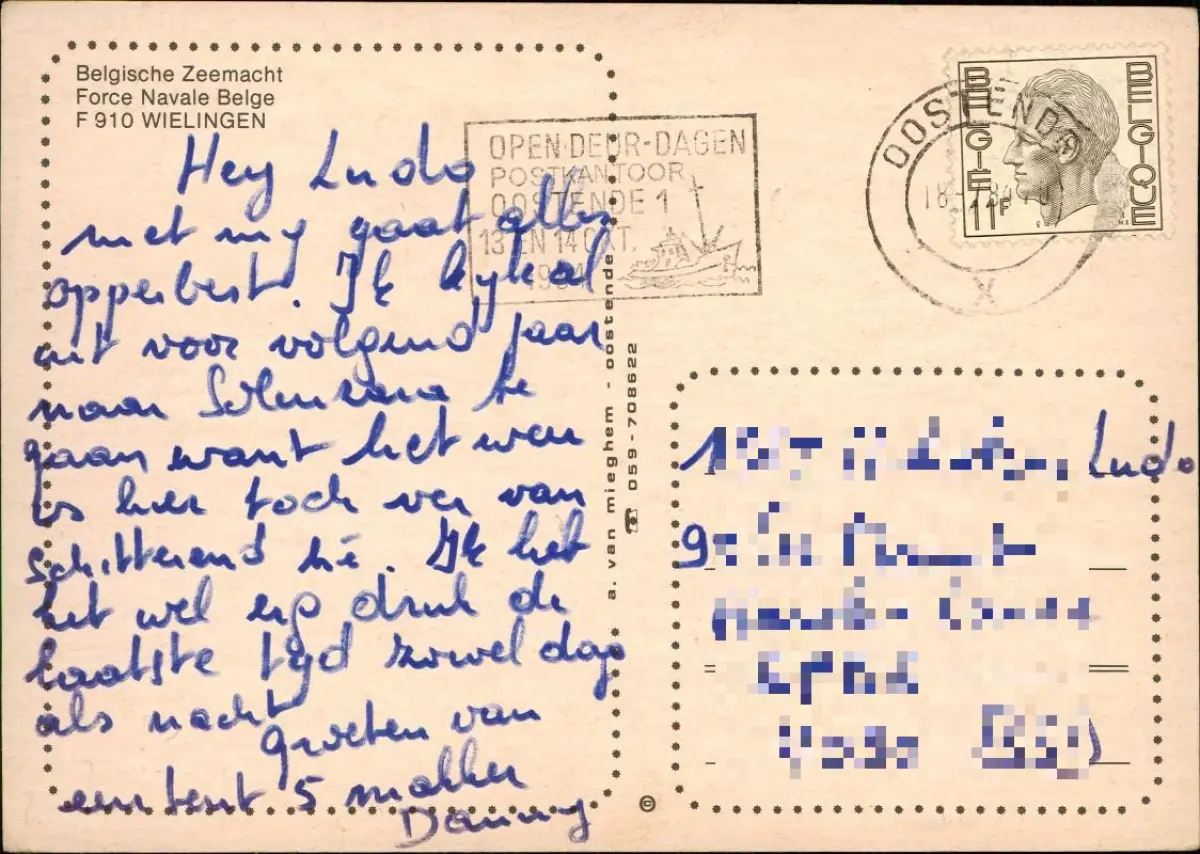 Belgische Zeemacht
Force Navale Belge
F 910 WIELINGEN
Hey Ludo
met my gaat alles
opperbest. Ik kyk al
uit voor volgend jaar
naar te
gaan want het weer
is hier toch ver van
schitterend hé. Ik heb
het wel erg druk de
laatste tyd zowel dag
als nacht
Groeten van
een tent 5 makker
Danny
OPEN-DEUR-DAGEN
POSTKANTOOR
OOSTENDE 1
13 EN 14 OKT.
OOSTENDE
X
BELGIE BELGIQUE
11F
a. van mieghem - oostende
☎ 059-708622
Ludo
©